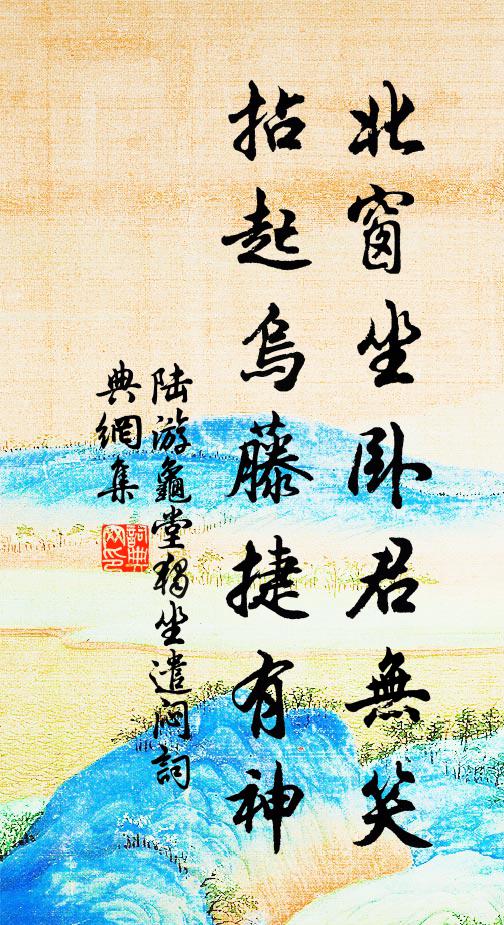 北窗坐卧君無笑
拈起烏藤捷有神
陸游龜堂獨坐遣悶詞
典網集
詞典